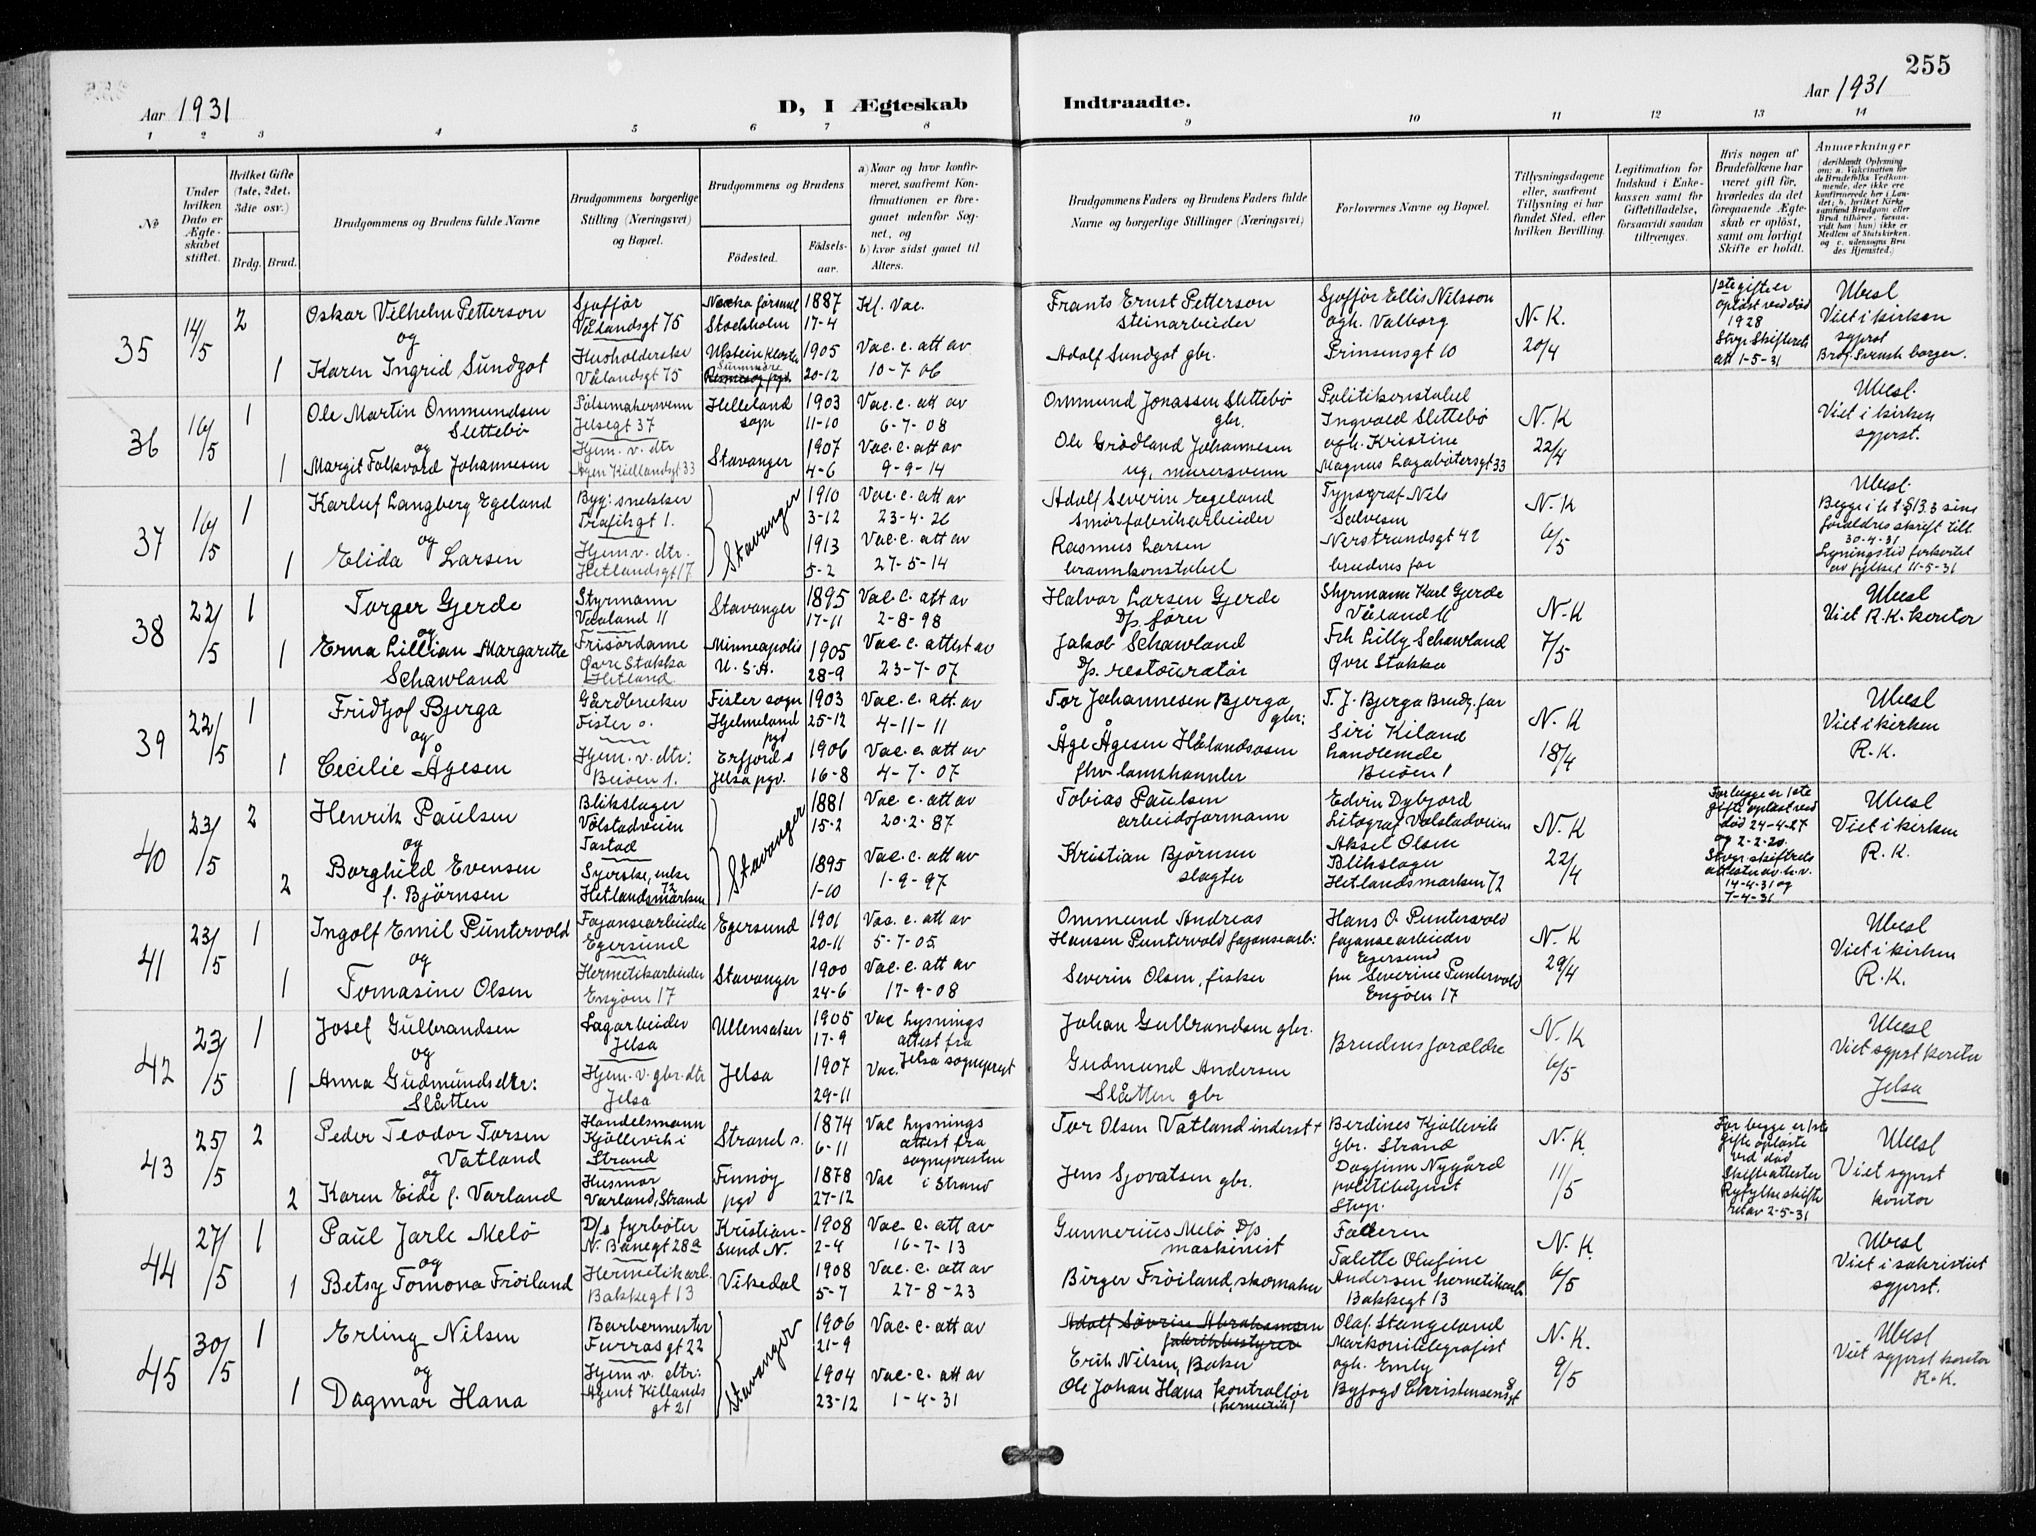 255
Aar 1931
D, I Ægteskab
Indtraadte.
Aar 1931
1 2 3 4 5 6 7 8 9 10 11 12 13 14
No
Under hvilken Dato er Ægteskabet stiftet.
Hvilket Gifte (1ste, 2det, 3die osv.)
Brdg. Brud.
Brudgommens og Brudens fulde Navne
Brudgommens borgerlige Stilling (Næringsvei) og Bopæl.
Brudgommens og Brudens
Födested.
Födselsaar.
a) Naar og hvor konfirmeret, saafremt Konfirmationen er foregaaet udenfor Sognet, og
b) hvor sidst gaaet til Alters.
Brudgommens Faders og Brudens Faders fulde Navne og borgerlige Stillinger (Næringsvei)
Forlovernes Navne og Bopæl.
Tillysningsdagene eller, saafremt Tillysning ei har fundet Sted, efter hvilken Bevilling.
Legitimation for Indskud i Enkekassen samt for Giftetilladelse, forsaavidt saadan tiltrænges.
Hvis nogen af Brudefolkene har været gift før, hvorledes da det foregaaende Ægteskab er oplöst, samt om lovligt Skifte er holdt.
Anmærkninger
(deriblandt Oplysning om: a. Vakcination for de Brudefolks Vedkommende, der ikke ere konfirmerede her i Landet; b. hvilket Kirkesamfund Brudgom eller Brud tilhörer, forsaavidt han (hun) ikke er Medlem af Statskirken, og c. udensogns Brudes Hjemsted.)
35
14/5
2
1
Oskar Vilhelm Petterson
og
Karen Ingrid Sundgot
Sjofför
Vålandsgt 75
Husholderske
Vålandsgt 75
Nacka försml
Stockholm
Ulstein
Sunnmöre
1887
17-4
1905
20-12
Kf. Vac.
Vac. c. att av
10-7-06
Frants Ernst Petterson
steinarbeider
Adolf Sundgot gbr.
Sjofför Ellis Nilsson
ogh. Valborg
Prinsensgt 10
N. K.
20/4
1ste gifte er
oplöst ved död
1928
Stvgr Skifterets
att 1-5-31
Ubesl
Viet i kirken
sgprst
36
16/5
1
1
Ole Martin Ommundsen
Slettebö
og
Margit Folkvord Johannesen
Pölsemakersvenn
Jelsegt 37
Hjem. v. dtr
Agen Kiellandsgt 33
Helleland
sogn
Stavanger
1903
11-10
1907
4-6
Vac. c. att av
6-7-08
Vac. c. att av
9-9-14
Ommund Jonassen Slettebö
gbr.
Ole Grödland Johannesen
ug, murersvenn
Politikonstabel
Ingvald Slettebö
ogh. Kristine
Magnus Lagabötersgt 33
N. K
22/4
Ubesl.
Viet i kirken
sgprst.
37
16/5
1
1
Karluf Langberg Egeland
og
Elida Larsen
Byg: snekker
Trafikgt 1.
Hjem v. dtr.
Hetlandsgt 17
Stavanger
1910
3-12
1913
5-2
Vac. c. att av
23-4-26
Vac. c. att av
27-5-14
Adolf Severin Egeland
Smörfabrikarbeider
Rasmus Larsen
brannkonstabel
Typograf Nils
Salvesen
Nerstrandsgt 42
brudens far
N. K
6/5
Ubesl.
foraldres skrift till
30-4-31
Lysningstid forkortet
av fylket 11-5-31
38
22/5
1
1
Torger Gjerde
og
Erna Lillian Margarette
Schawland
Styrmann
Vaaland 11
Frisördame
Övre Stokka
Hetland
Stavanger
Minneapolis
U. S. A.
1895
17-11
1905
28-9
Vac. c. att av
2-8-98
Vac. c. attest av
23-7-07
Halvor Larsen Gjerde
D/p. förer
Jakob Schawland
D/p. restouratör
Styrmann Karl Gjerde
Våland 11
Frk Lilly Schawland
Övre Stokka
N. K
7/5
Ubesl
Viet R. K. kontor
39
22/5
1
1
Fridtjof Bjerga
og
Cecilie Ågesen
Gårdbruker
Fister s.
Hjem. v. dtr:
Beiöen 1.
Fister sogn
Hjelmeland
pgd
Erfjord s
Jelsa pgv.
1903
25-12
1906
16-8
Vac. c. att. av
4-11-11
Vac. c. att av
4-7-07
Tor Johannesen Bjerga
gbr:
Åge Ågesen Hålandsosen
T. J. Bjerga Brudg. far
Siri Kiland
handlende
Beiöen 1
N. K
18/4
Ubesl
Viet i kirken
R. K.
40
23/5
2
2
Henrik Paulsen
og
Borghild Evensen
f. Björnsen
Blikslager
Volstadveien
Tastad
Syerske, enke
Hetlandsmarken 72
Stavanger
1881
15-2
1895
1-10
Vac c. att av
20-2-87
Vac. c. att av
1-9-97
Tobias Paulsen
arbeidsformann
Kristian Björnsen
slagter
Edvin Dybjord
Litograf Volstadveien
Aksel Olsen
Blikslager
Hetlandsmarken 72
N. K
22/4
For begge er 1ste
gifte oplöst ved
död 24-4-27
og 2-2-20.
Stvgr. skifterets
attester av h.v.
14-4-31 og
7-4-31
Ubesl
Viet i kirken
R. K.
41
23/5
1
1
Ingolf Emil Puntervold
og
Tomasine Olsen
Fajansearbeider
Egersund
Hermetikarbeider
Engöen 17
Egersund
Stavanger
1901
20-11
1900
24-6
Vac. c. att av
5-7-05
Vac. c. att av
17-9-08
Ommund Andreas
Hansen Puntervold fajansearb:
Severin Olsen, fisker
Hans O. Puntervold
fajansearbeider
Egersund
fru Severine Puntervold
Engöen 17
N. K
29/4
Ubesl
Viet i kirken
R. K.
42
23/5
1
1
Josef Gulbrandsen
og
Anna Gudmundsdtr:
Slåtten
Sagarbeider
Jelsa
Hjem. v. gbr. dtr
Jelsa
Ullensaker
Jelsa
1905
17-9
1907
29-11
Vac lysnings
attest fra
Jelsa sogneprest
Vac.
Johan Gulbrandsen gbr.
Gudmund Andersen
Slåtten gbr
Brudens foraldre
N. K
6/5
Ubesl
Viet sgprst kontor
Jelsa
43
25/5
2
2
Peder Teodor Torsen
Vatland
og
Karen Eide f. Varland
Handelsmann
Kjöllevik i
Strand
Husmor
Varland, Strand
Strand s.
Finnöy
pgd
1874
6-11
1878
27-12
Vac lysnings
attest fra
sognepresten
Vac i Strand
Tor Olsen Vatland inderst +
Jens Sjovatsen gbr.
Berdines Kjöllevik
gbr. Strand
Dagfinn Nygård
politibetjent
Stvgr.
N. K.
11/5
For begge er 1ste
gifte oplöste
ved död
Skifteattester
Ryfylke skifte
ret av 2-5-31
Ubesl
Viet sgprst
kontor
44
27/5
1
1
Paul Jarle Melö
og
Betsy Tomona Fröiland
D/s fyrböter
N. Banegt 28a
Hermetikarb.
Bakkegt 13
Kristian-
sund N.
Vikedal
1908
2-4
1908
5-7
Vac. c. att av
16-7-13
Vac. c. att av
27-8-23
Gunnerius Melö D/p
maskinist
Birger Fröiland, skomaker
Faderen
Talette Olufine
Andersen hermetikarb
Bakkegt 13
N. K.
6/5
Ubesl
Viet i sakristiet
sgprst.
45
30/5
1
1
Erling Nilsen
og
Dagmar Hana
Barbermester
Furrasgt 22
Hjem v. dtr:
Agent Killands
gt 21
Stavanger
1906
21-9
1904
23-12
Vac. c. att av
Vac. c. att av
1-4-31
Adolf Sövrin Abrahamsen
fabrikkbestyrer
Erik Nilsen, Baker
Ole Johan Hana kontrollör
(hermetik)
Olaf Stangeland
Markonitelegrafist
ogh. Emly
Byfogd Christensensgt 8
N. K.
9/5
Ubesl
Viet sgprst kontor
R. K.